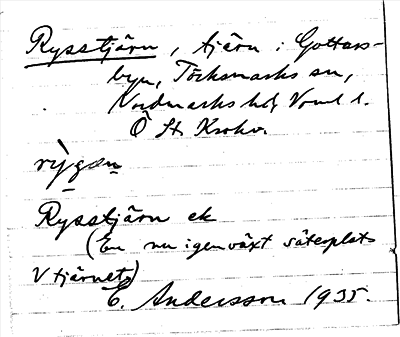 Rysstjärn, tjärn i Gottars-
byn, Töcksmarks sn,
Nordmarks hd, Vrml l.
Ö St. Krokv.
rỳgən
Rysstjärn ek
(En nu igenväxt säterplats
V tjärnet)
E. Andersson 1935.